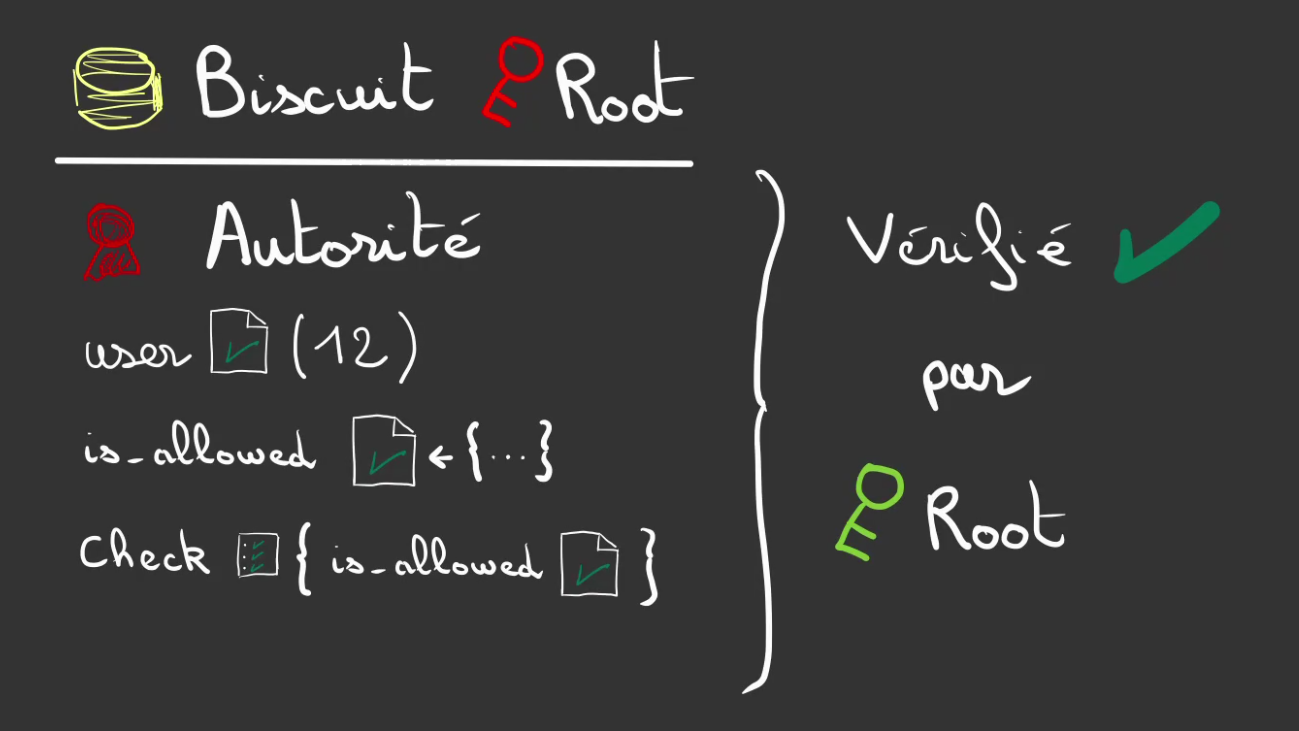 Biscuit Root
Autorité
user (12)
is_allowed ← {...}
Check { is_allowed }
Vérifié
par
Root